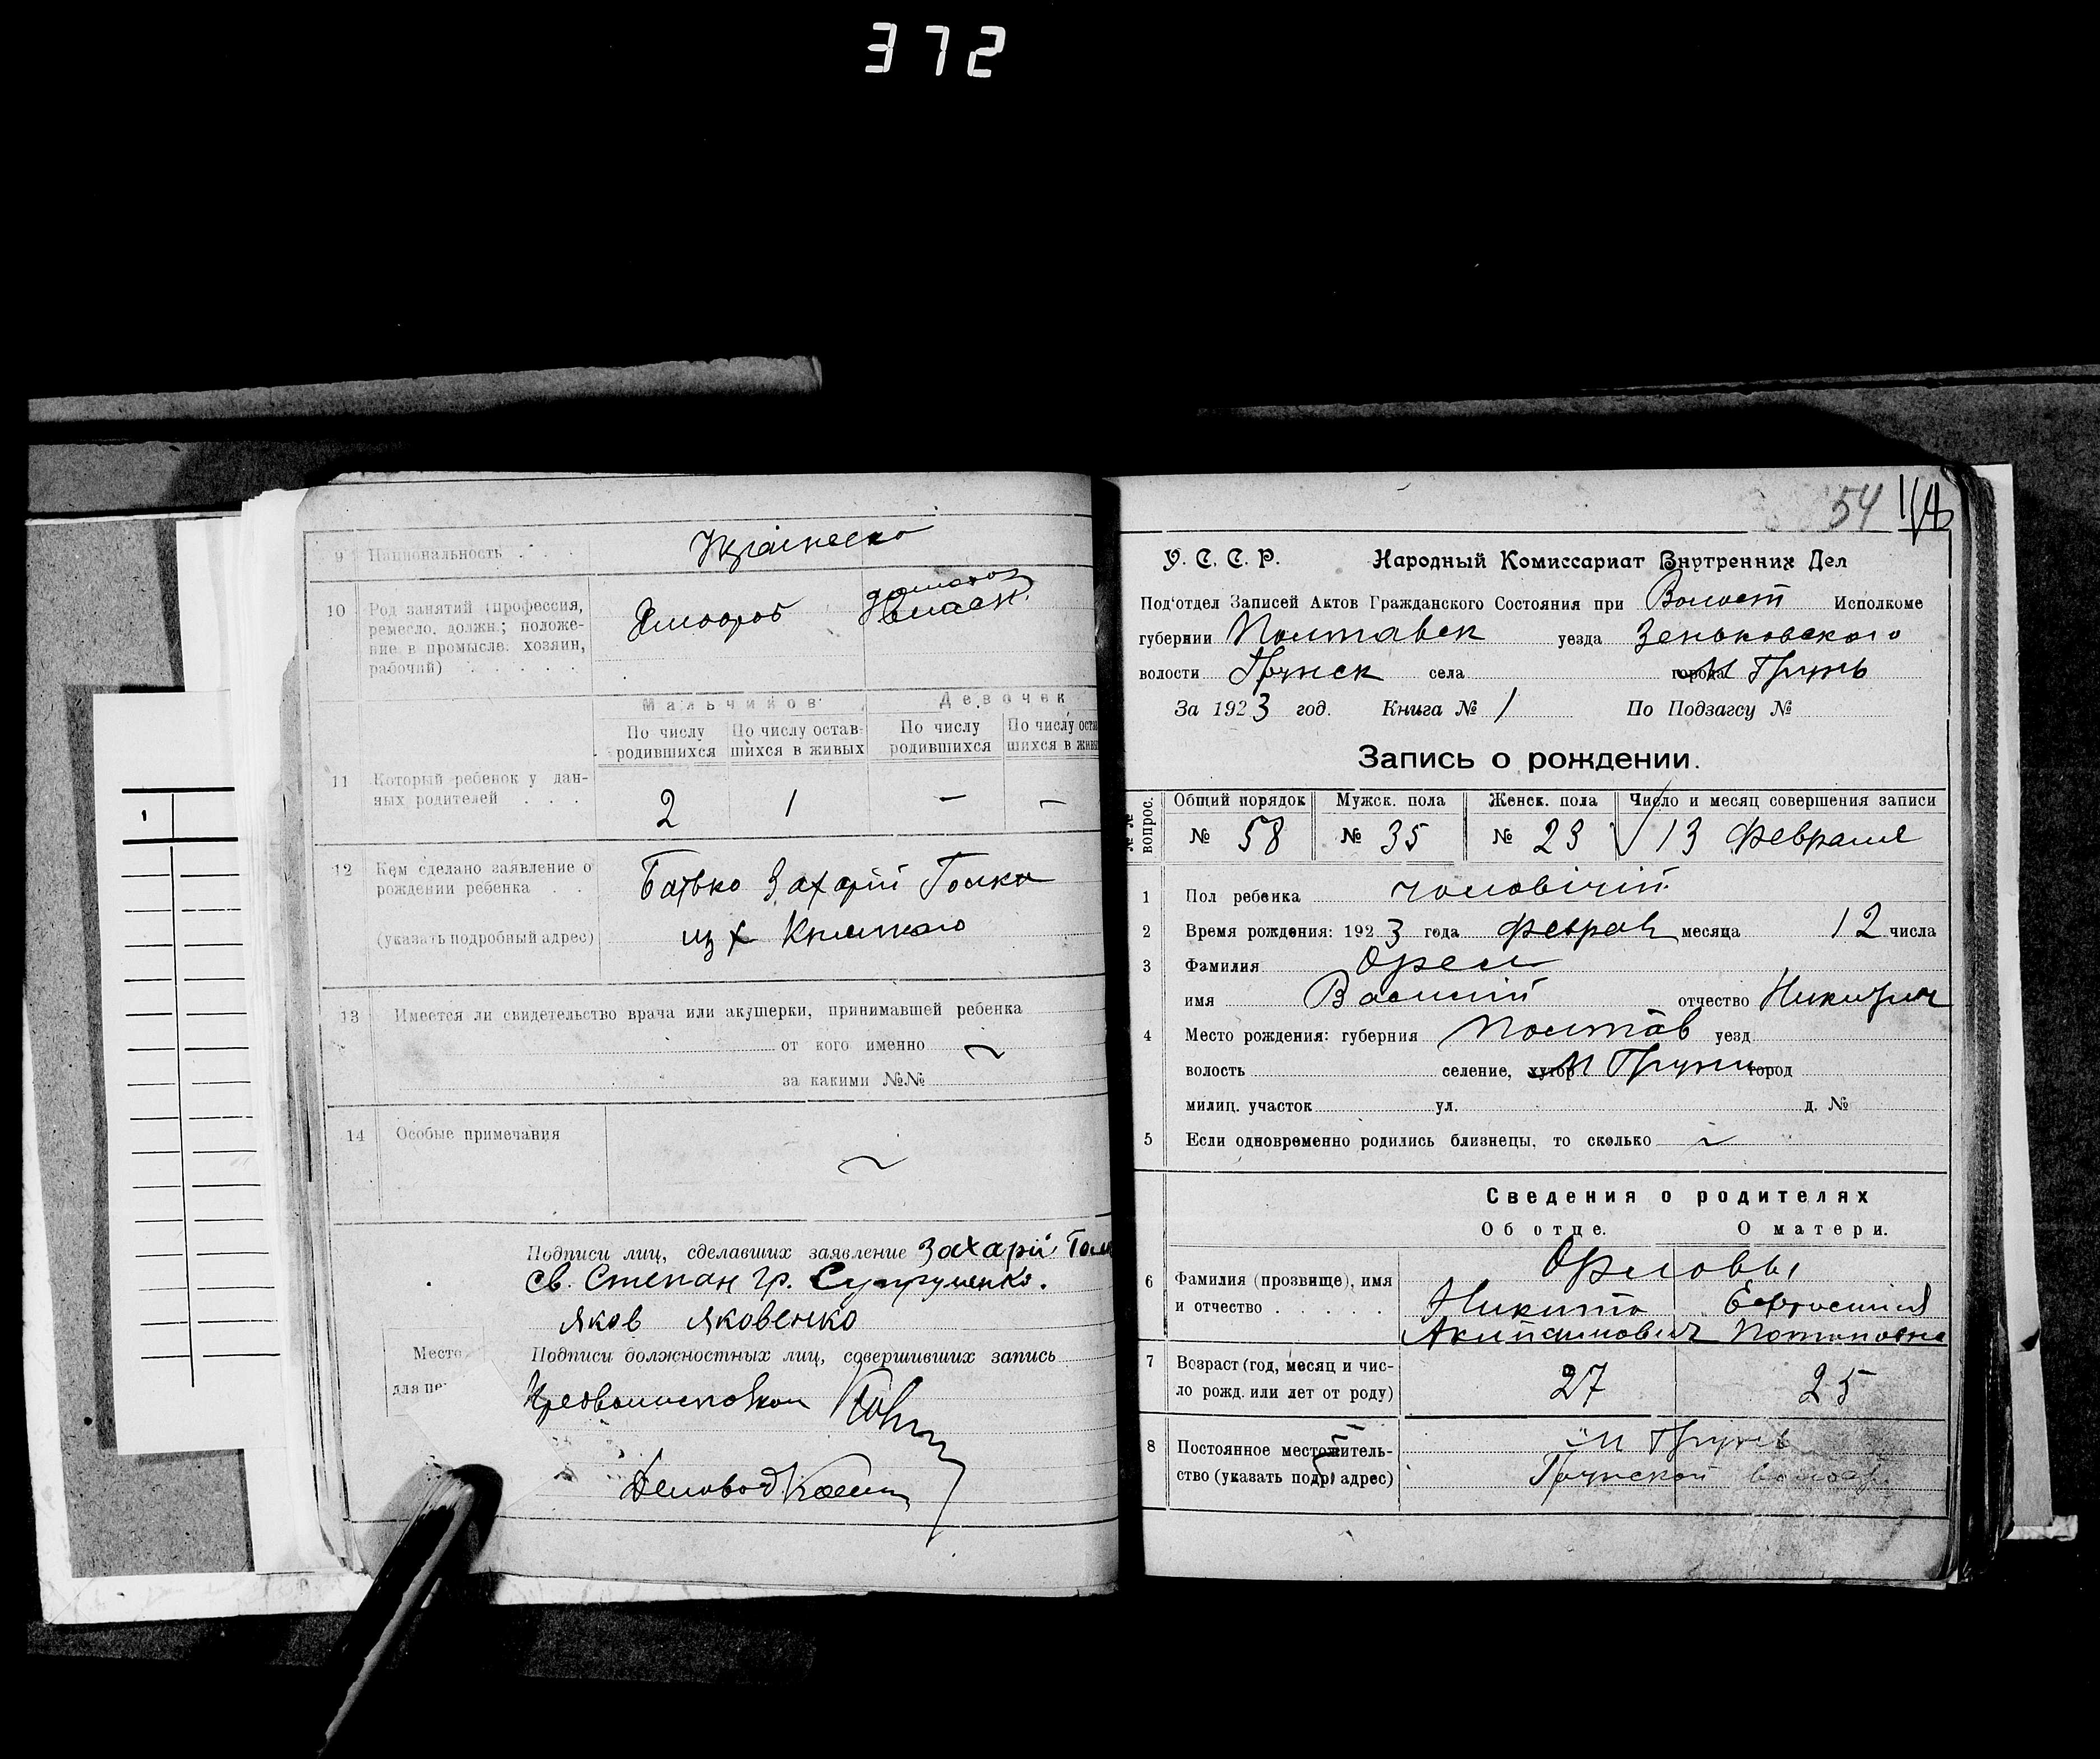 372
9 Национальность . . . Українська
10 Род занятий (профессия,
ремесло, должн.; положе-
ние в промысле: хозяин,
рабочий) . . . . .
Хлібороб
11 Который ребенок у дан-
ных родителей . . .
Мальчиков Девочек
По числу родившихся По числу остав-шихся в живых По числу родившихся По числу оста шихся в жив
2 1 — —
12 Кем сделано заявление о
рождении ребенка . .
(указать подробный адрес)
Батько Захарій Голко
из х
13 Имеется ли свидетельство врача или акушерки, принимавшей ребенка
от кого именно ~
за какими №№
14 Особые примечания ~
Подписи лиц, сделавших заявление Захарій
св. Степан гр. Супруненко.
Яков Яковенко
Место
для пе
Подписи должностных лиц, совершивших запись
Деловод
54
У. С. С. Р. Народный Комиссариат Внутренних Дел
Под'отдел Записей Актов Гражданского Состояния при Волост Исполкоме
губернии Полтавск уезда Зеньковского
волости Грунск села города М Грунь
За 1923 год. Книга № 1 По Подзагсу №
Запись о рождении.
№№ вопрос. Общий порядок Мужск. пола Женск. пола Число и месяц совершения записи
№ 58 № 35 № 23 13 Февраля
1 Пол ребенка чоловічій
2 Время рождения: 1923 года Феврал месяца 12 числа
3 Фамилия Орел
имя Василий отчество Никитич
4 Место рождения: губерния Полтав уезд
волость селение, хутор М Грунь город
милиц. участок ул. д. №
5 Если одновременно родились близнецы, то сколько ~
Сведения о родителях
Об отце. О матери.
6 Фамилия (прозвище), имя
и отчество . . . . .
Орловы
Никита Ефросиния
Потаповна
7 Возраст (год, месяц и чис-
ло рожд. или лет от роду)
27 25
8 Постоянное местожитель-
ство (указать подр. адрес)
М Грунь
Грунской волости